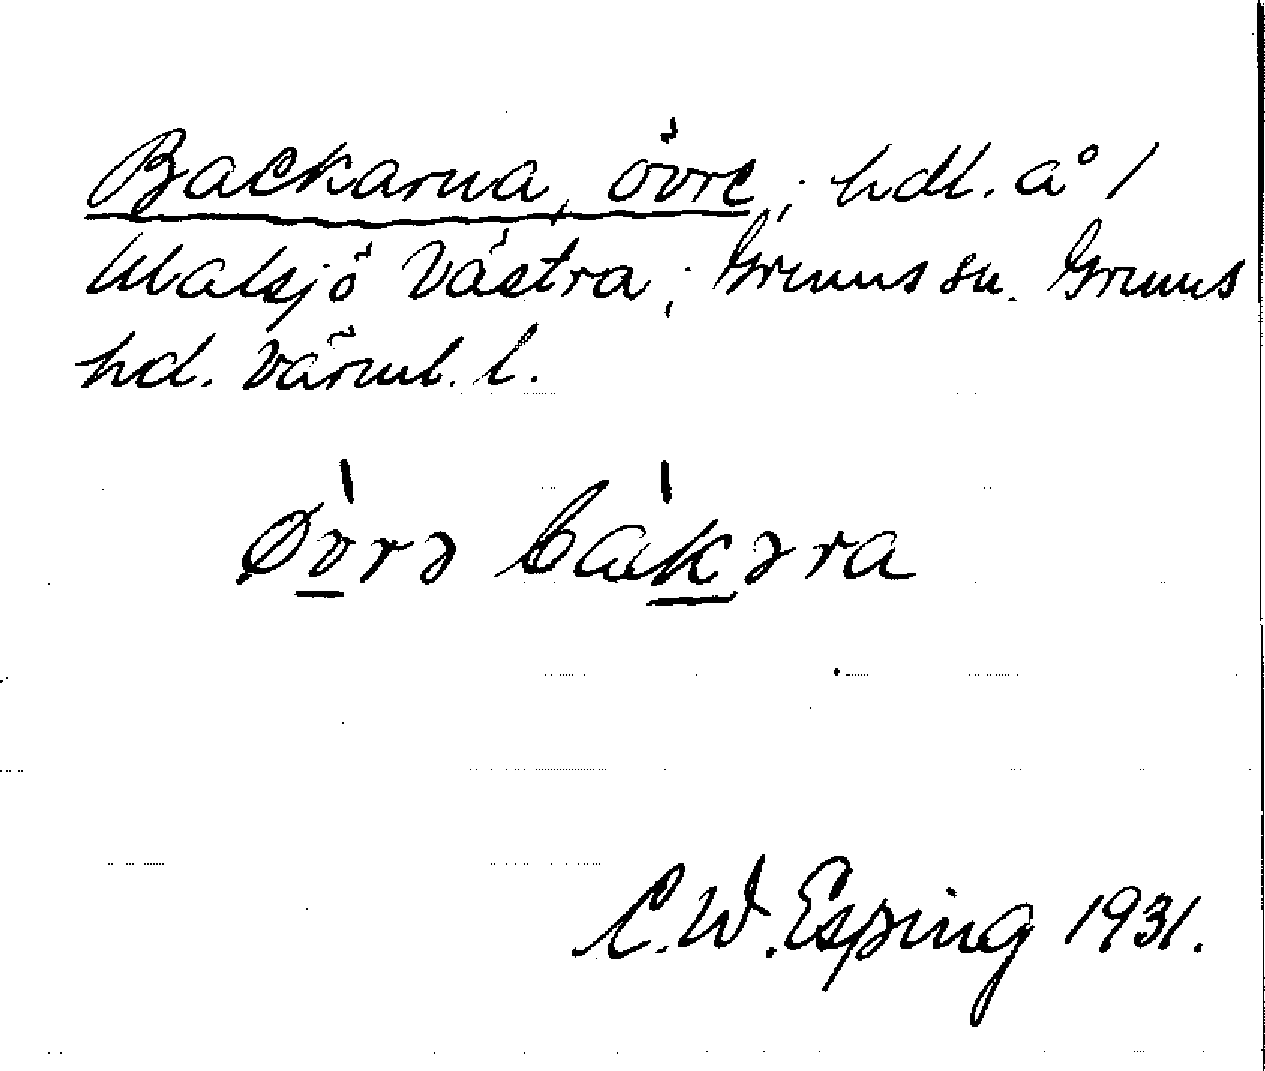 Backarna, övre; hdl. å 1
Malsjö Västra; Grums sn. Grums
hd. Värml. l.
øvrə bakəra
C.W. Esping 1931.